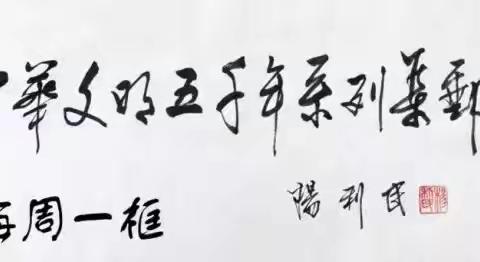 中華文明五千年系列集郵
每周一框
陽利民